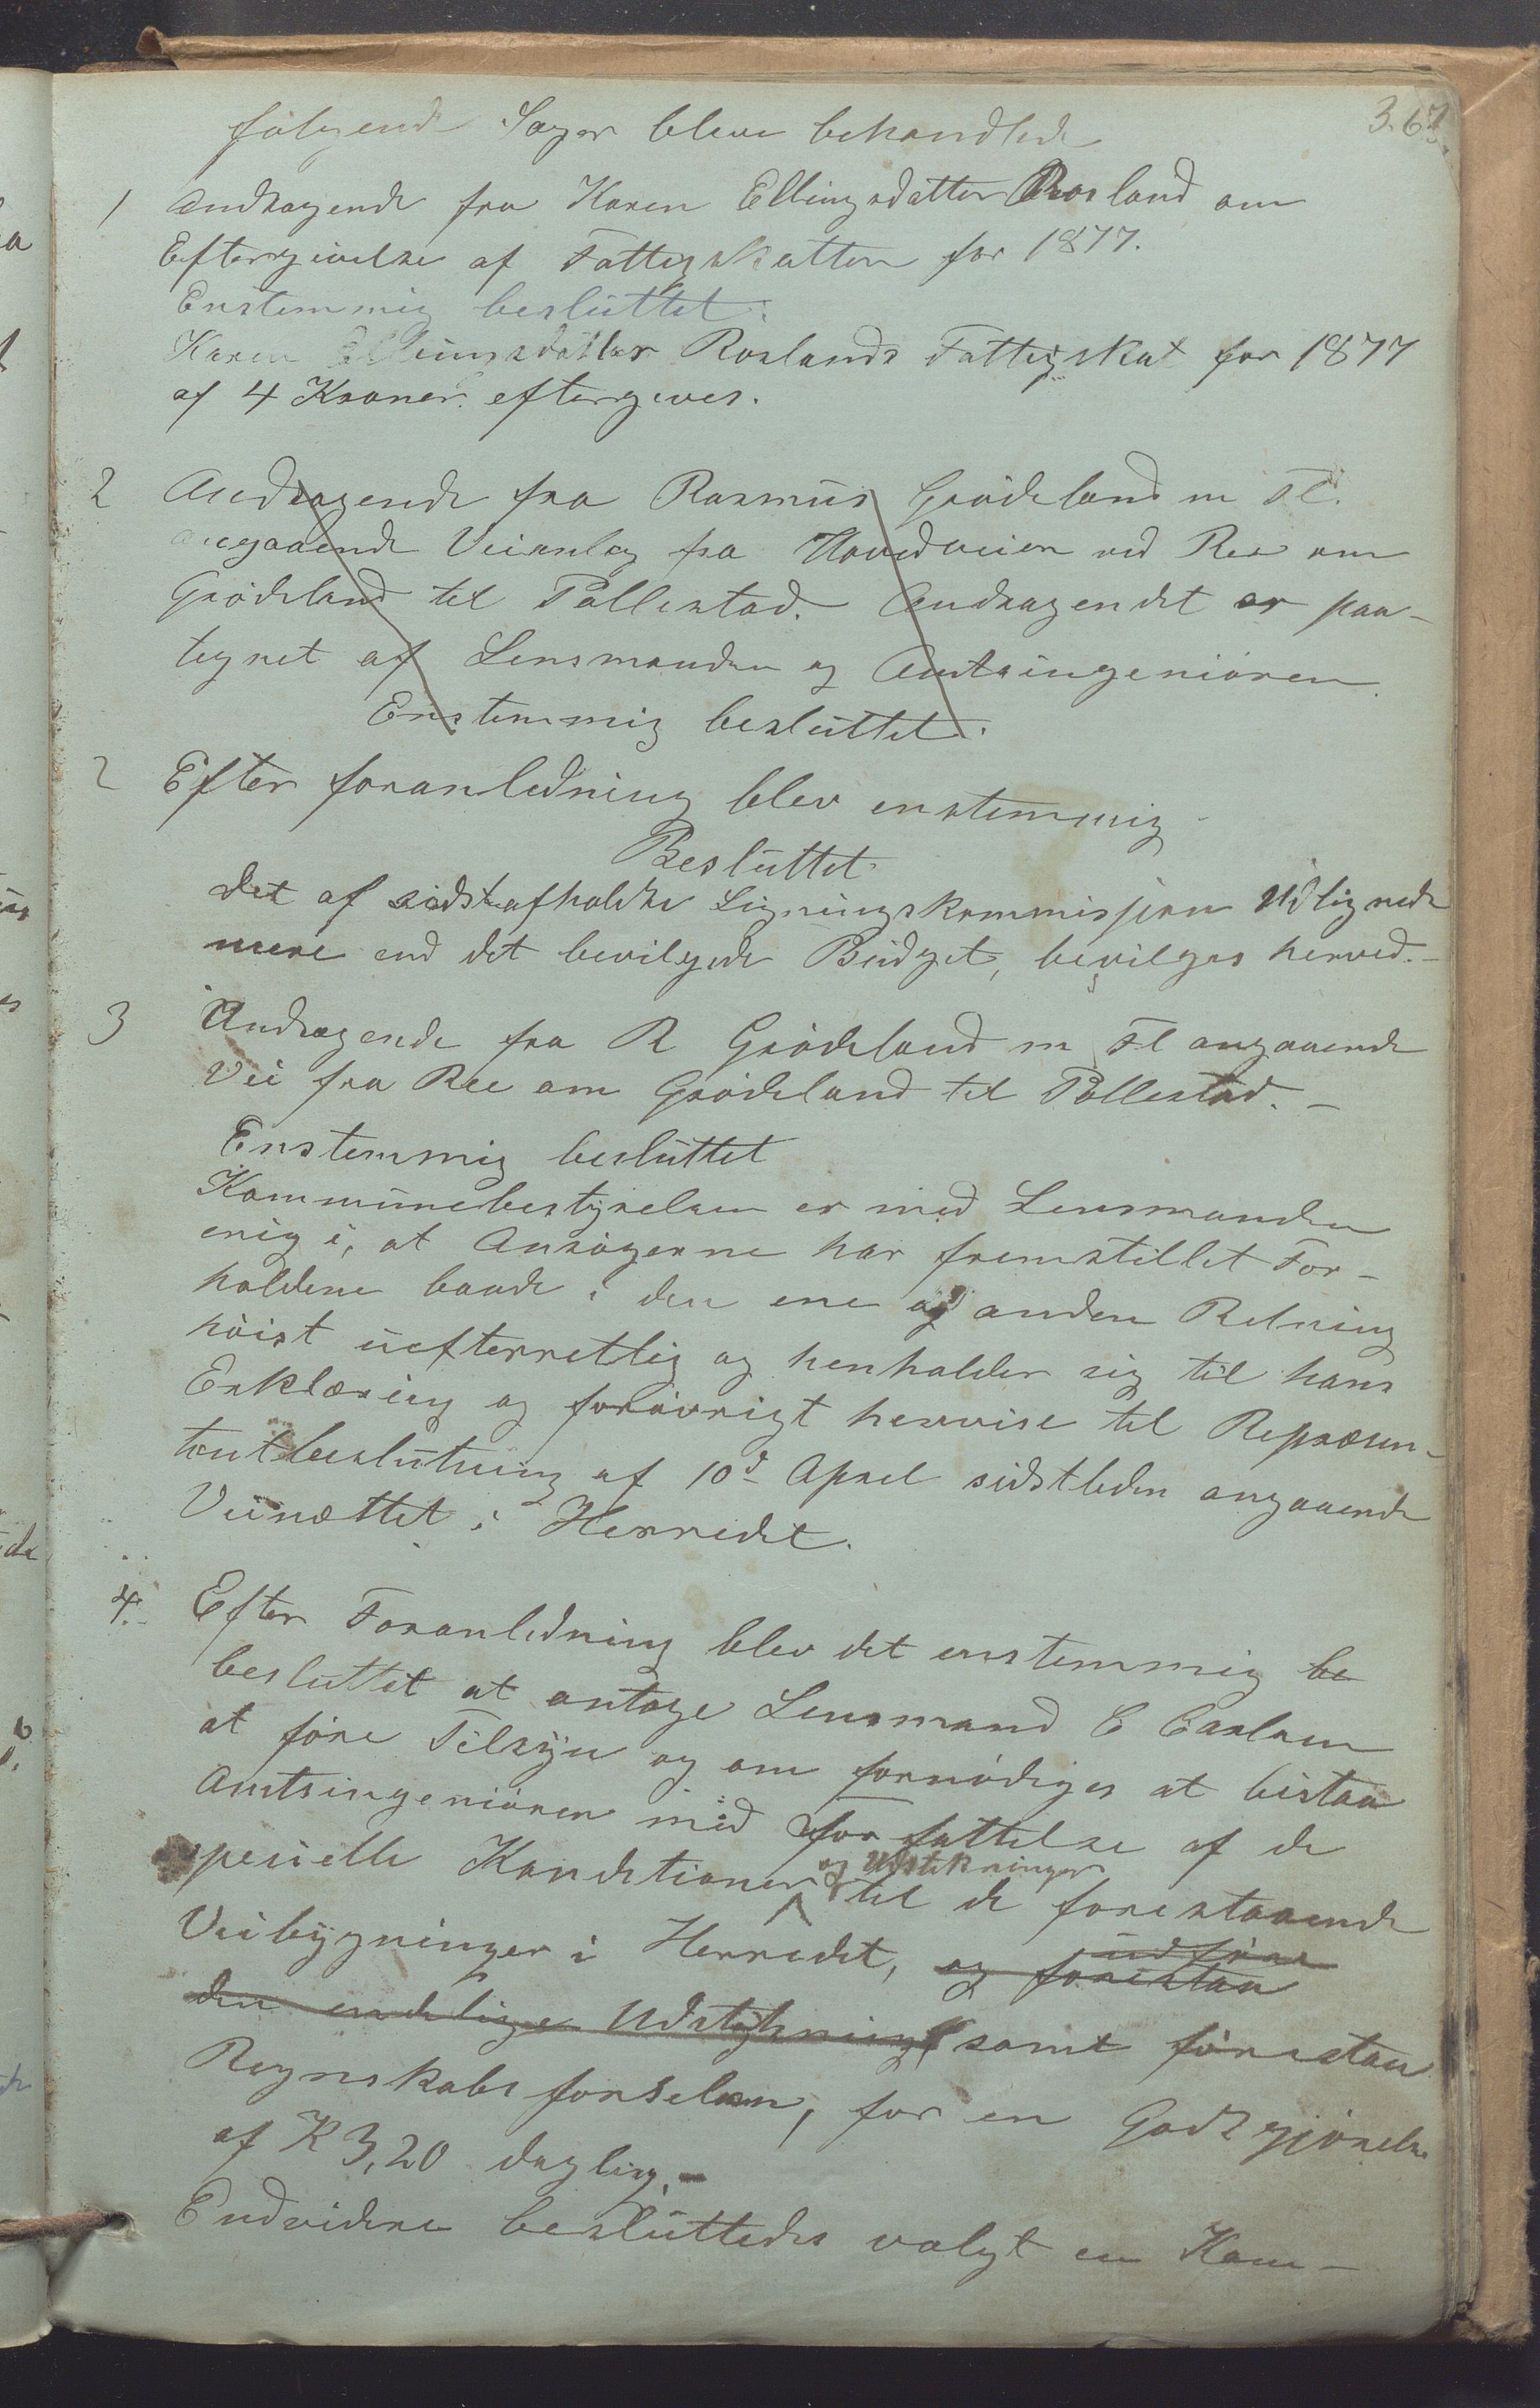 367.
følgende Sager bleve behandlede
1 Andragende fra Karen Ellingsdatter Rosland om
Eftergivelse af Fattigskatten for 1877.
Enstemmig besluttet:
Karen Ellingsdatter Roslands Fattigskat for 1877
af 4 Kroner eftergives.
2 Andragende fra Rasmus Grødeland m Fl.
angaaende Veianlæg fra Hovedveien ved Ree om
Grødeland til Pollestad. Andragendet er paa-
tegnet af Lensmanden og Amtsingeniøren
Enstemmig besluttet.
2 Efter foranledning blev enstemmig
Besluttet.
Det af sidstafholdte Ligningskommisjon Udlignede
mere end det bevilgede Budget, bevilges herved.-
3 Andragende fra R Grødeland m Fl angaaende
Vei fra Ree om Grødeland til Pollestad. -
Enstemmig besluttet
Kommunebestyrelsen er med Lensmanden
enig i, at Ansøgerne har fremstillet For-
holdene baade i den ene og anden Retning
høist uefterrettlig og henholder sig til hans
Erklæring og forøvrigt henvise til Repræsen-
tantbeslutning af 10d April sidstleden angaaende
Veinættet i Herredet.
4. Efter Foranledning blev det enstemmig be
besluttet at antage Lensmand C Carlsen
at føre Tilsyn og om fornødiges at bistaa
Amtsingeniøren med Forfattelse af de
specielle Konditioner og Udstikninger til de forestaaende
Veibygninger i Herredet, og forestaa udføre
den endelige Udstykning samt forestaa
Regnskabs førselen, for en Godtgjørelse
af K 3,20 daglig.-
Endvidere besluttedes valgt en Kom-